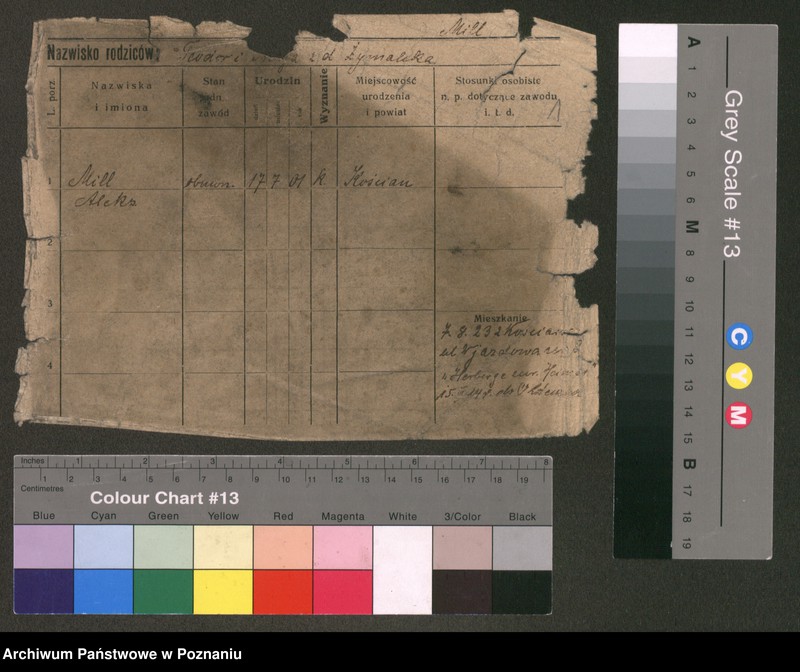 Mill
Nazwisko rodziców:
L. porz.
Nazwiska
i imiona
Stan
zawód
Urodzin
Wyznanie
Miejscowość
urodzenia
i powiat
Stosunki osobiste
n. p. dotyczące zawodu
i. t. d.
1
Mill
Aleks
17 7 01 k
Kościan
2
3
4
Mieszkanie
7. 8. 23 z Kościan
Grey Scale #13
A 1 2 3 4 5 6 M 8 9 10 11 12 13 14 15 B 17 18 19
C
Y
M
Inches 1 2 3 4 5 6 7 8
Centimetres 1 2 3 4 5 6 7 8 9 10 11 12 13 14 15 16 17 18 19
Colour Chart #13
Blue Cyan Green Yellow Red Magenta White 3/Color Black
Archiwum Państwowe w Poznaniu